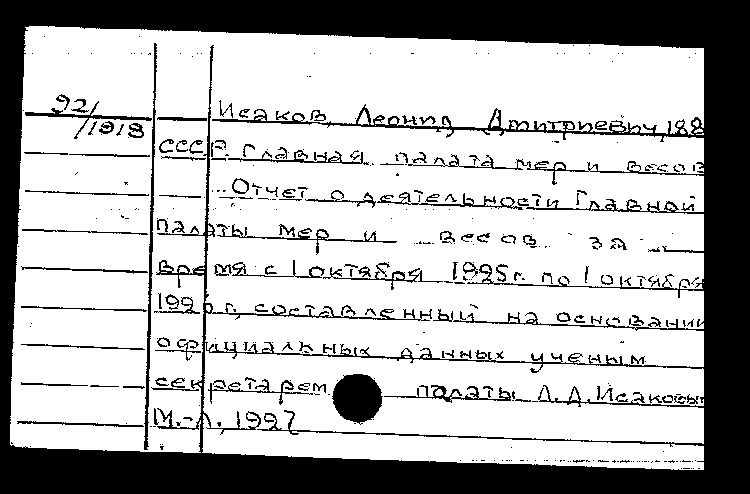 92/1918
Исаков, Леонид Дмитриевич, 188
СССР. Главная палата мер и весов
...Отчет о деятельности Главной
палаты мер и весов за ...
время с 1 октября 1925 г. по 1 октября
1926 г., составленный на основании
официальных данных ученым
секретарем палаты Л.Д. Исаковы
М.-Л., 1927